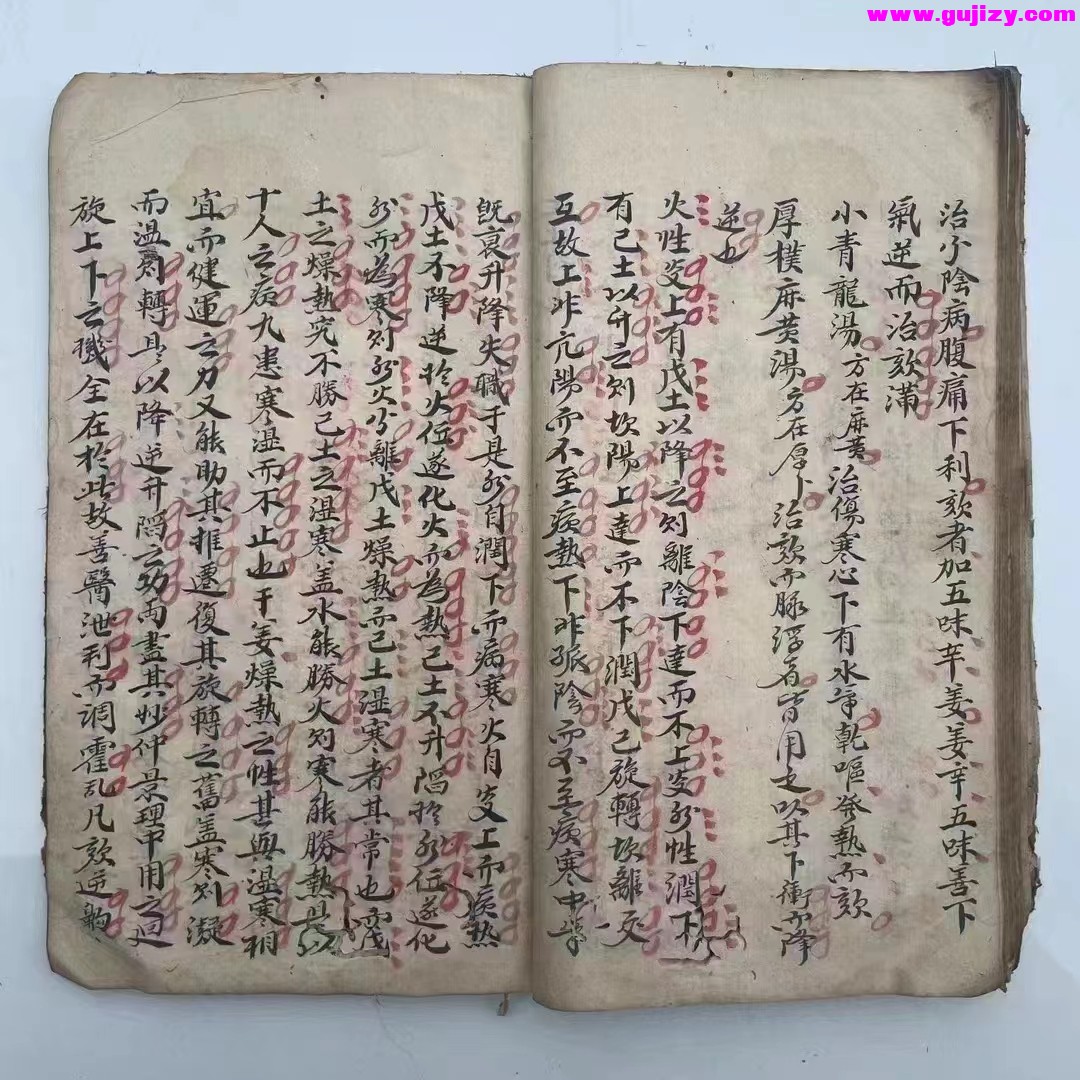 www.gujizy.com
治少陰病腹痛下利欬者加五味辛姜姜辛五味善下
氣逆而治欬滿
小青龍湯方在麻黃治傷寒心下有水氣乾嘔發熱而欬
厚樸麻黄湯方在厚卜治欬而脉浮者皆用之以其下衝而降
逆也
火性炎上有戊土以降之则離陰下達而不上炎水性潤下
有己土以升之则坎陽上達而不下潤戊己旋轉坎離交
互故上非亢陽而不至病熱下非孤陰而不至病寒中氣
既衰升降失職于是水自潤下而病寒火自炎上而病熱
戊土不降逆於火位遂化火而為熱己土不升陷於水位遂化
水而為寒则水火分離戊土燥熱而己土湿寒者其常也而戊
土之燥熱究不勝己土之湿寒盖水能勝火则寒能勝熱是以
十人之病九患寒湿而不止也干姜燥熱之性甚與湿寒相
宜而健運之力又能助其推遷復其旋轉之舊盖寒则凝
而温则轉是以降逆升陷之功兩盡其妙仲景理中用之迴
旋上下之機全在於此故善醫泄利而調霍乱凡欬逆齁